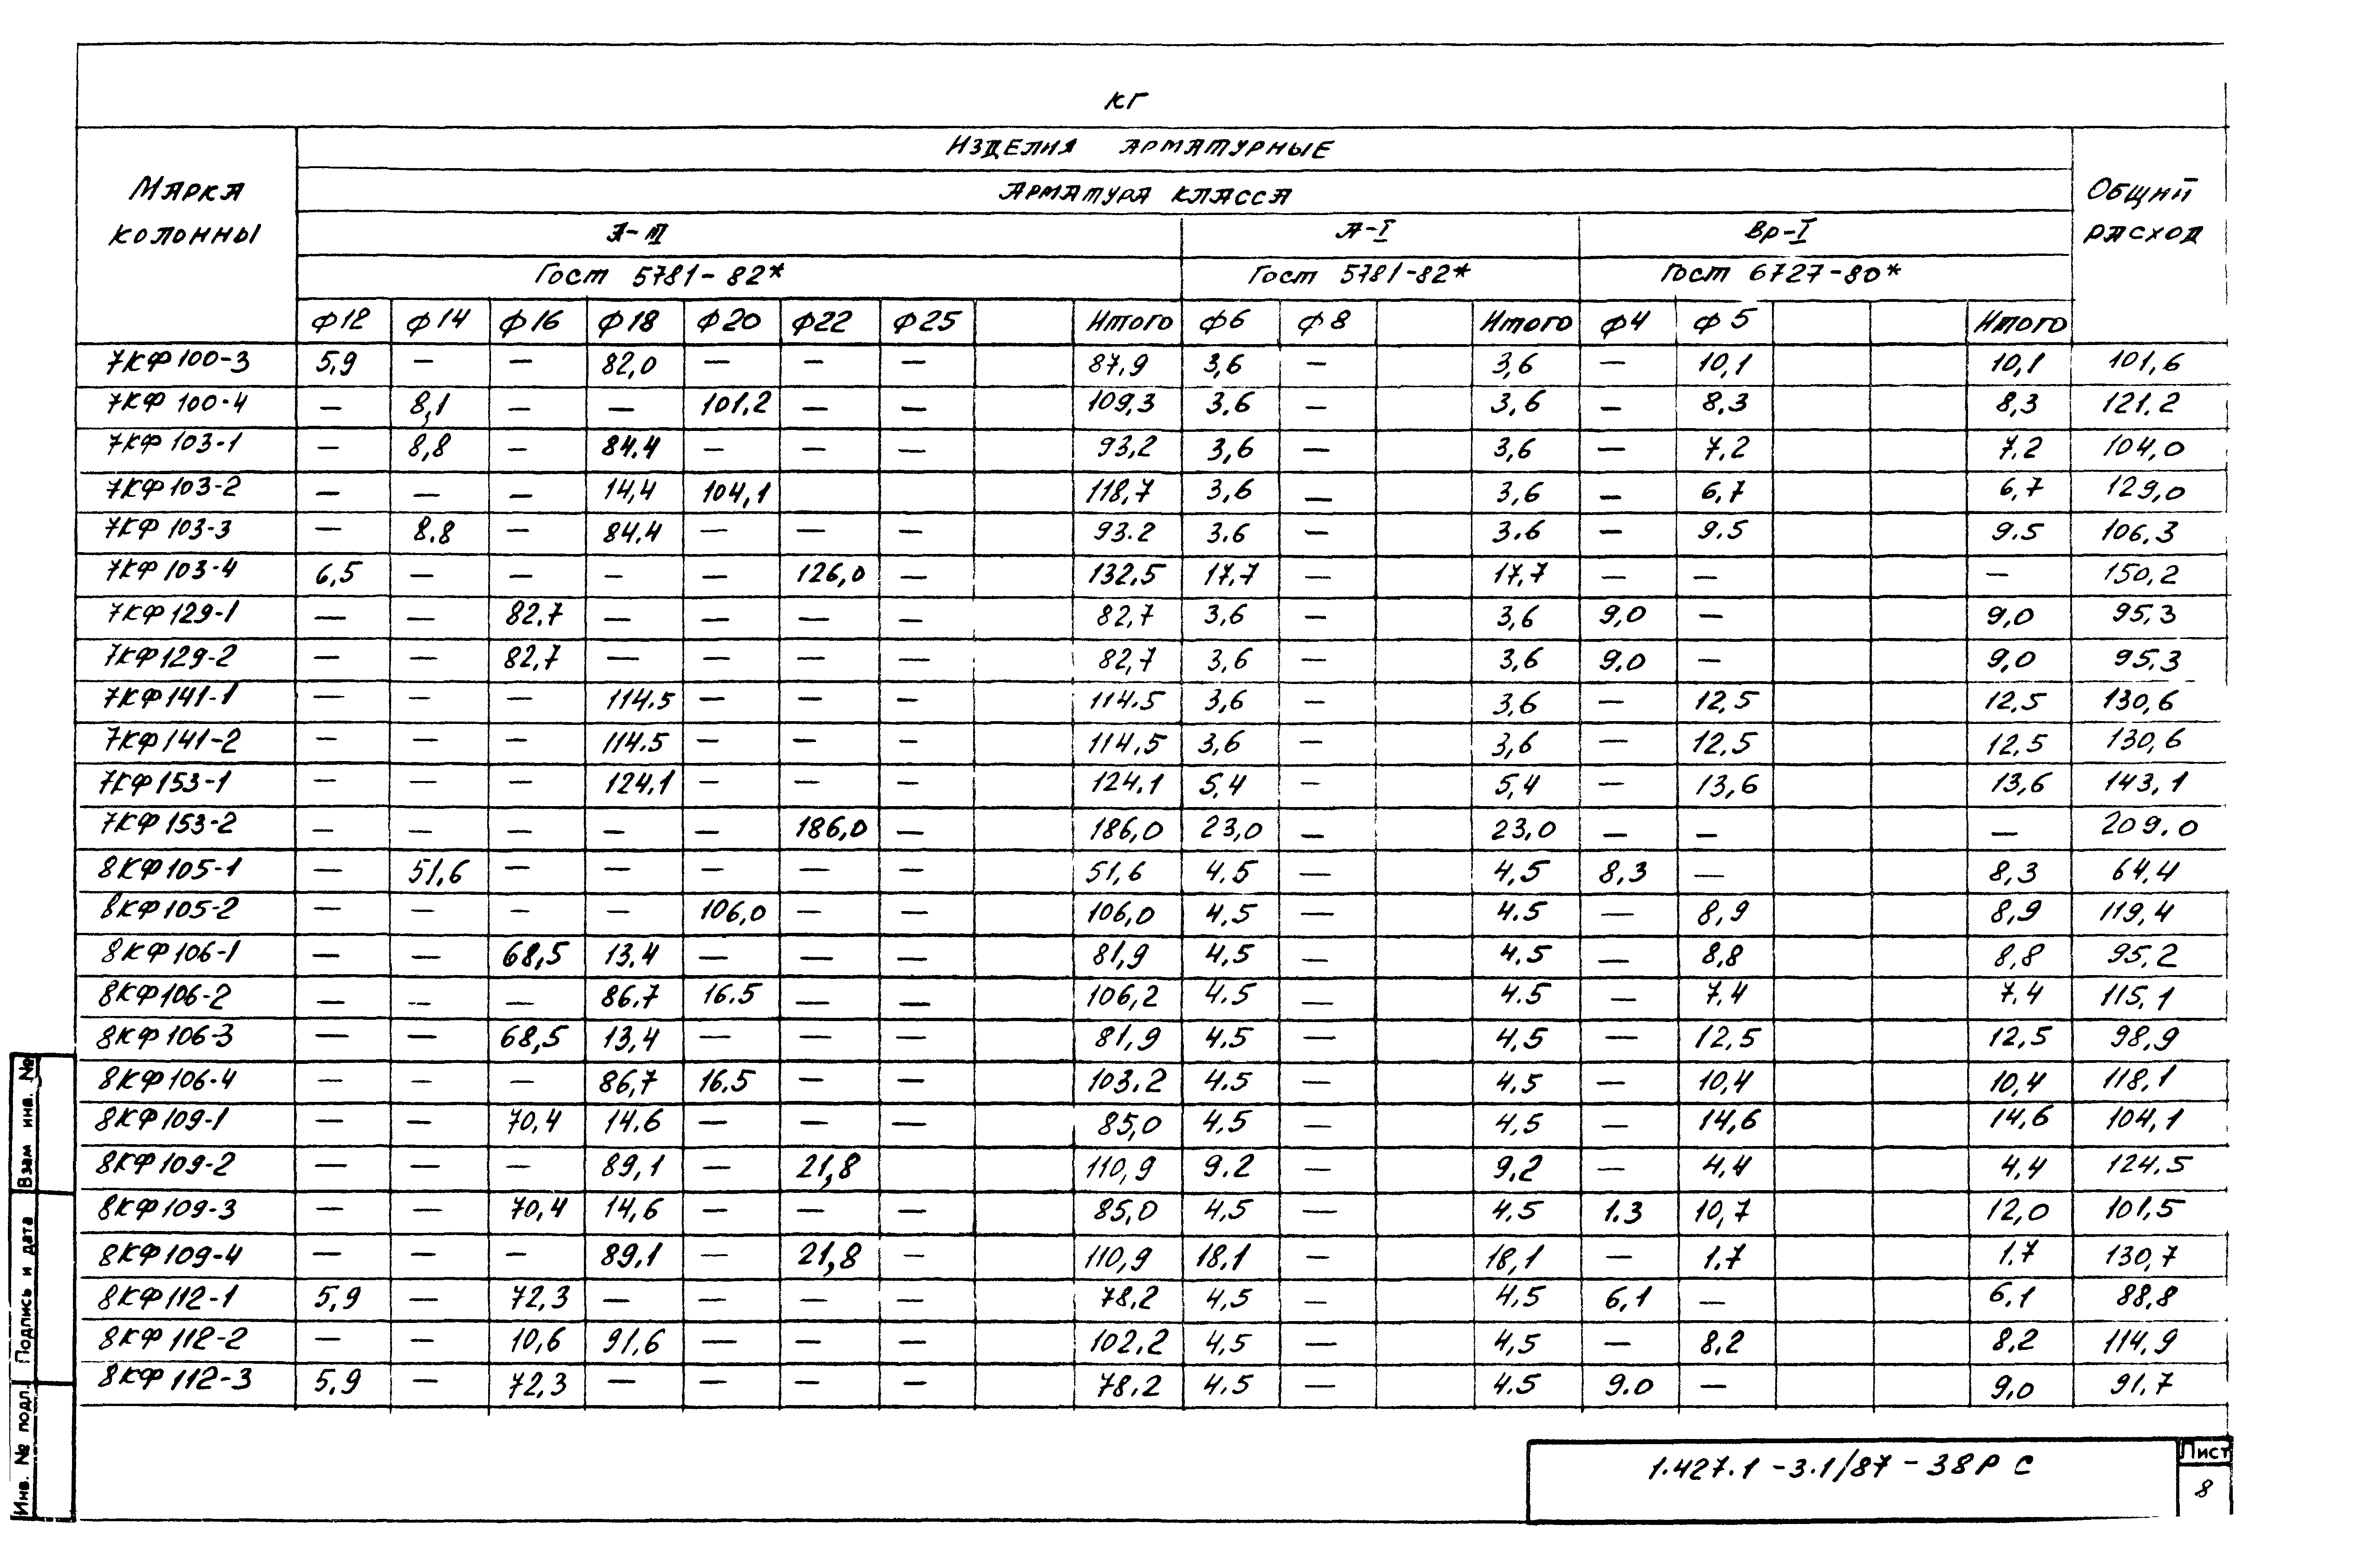 кг
Марка колонны
Изделия арматурные
Общий расход
Арматура класса
А-III А-I Вр-I
Гост 5781-82* Гост 5781-82* Гост 6727-80*
Ф12 Ф14 Ф16 Ф18 Ф20 Ф22 Ф25 Итого Ф6 Ф8 Итого Ф4 Ф5 Итого
7КФ100-3 5,9 — — 82,0 — — — 87,9 3,6 — 3,6 — 10,1 10,1 101,6
7КФ100-4 — 8,1 — — 101,2 — — 109,3 3,6 — 3,6 — 8,3 8,3 121,2
7КФ103-1 — 8,8 — 84.4 — — — 93,2 3,6 — 3,6 — 7,2 7,2 104,0
7КФ103-2 — — — 14,4 104,1 118,7 3,6 — 3,6 — 6,7 6,7 129,0
7КФ103-3 — 8.8 — 84.4 — — — 93.2 3.6 — 3.6 — 9.5 9.5 106,3
7КФ103-4 6,5 — — — — 126,0 — 132,5 17.7 — 17,7 — — — 150,2
7КФ129-1 — — 82.7 — — — — 82,7 3,6 — 3,6 9,0 — 9,0 95,3
7КФ129-2 — — 82,7 — — — — 82,7 3,6 — 3,6 9.0 — 9,0 95,3
7КФ141-1 — — — 114.5 — — — 114.5 3,6 — 3,6 — 12,5 12,5 130,6
7КФ141-2 — — — 114.5 — — — 114,5 3,6 — 3,6 — 12,5 12,5 130,6
7КФ153-1 — — — 124.1 — — — 124.1 5,4 — 5,4 — 13,6 13,6 143,1
7КФ153-2 — — — — — 186,0 — 186,0 23,0 — 23,0 — — — 209.0
8КФ105-1 — 51,6 — — — — — 51,6 4.5 — 4,5 8,3 — 8,3 64,4
8КФ105-2 — — — — 106,0 — — 106,0 4.5 — 4.5 — 8,9 8,9 119,4
8КФ106-1 — — 68,5 13.4 — — — 81,9 4.5 — 4.5 — 8,8 8,8 95,2
8КФ106-2 — — — 86.7 16.5 — — 106,2 4.5 — 4.5 — 7,4 7,4 115,1
8КФ106-3 — — 68,5 13,4 — — — 81,9 4.5 — 4,5 — 12,5 12,5 98,9
8КФ106-4 — — — 86,7 16.5 — — 103.2 4.5 — 4.5 — 10,4 10,4 118,1
8КФ109-1 — — 70,4 14.6 — — — 85,0 4.5 — 4.5 — 14,6 14,6 104,1
8КФ109-2 — — — 89,1 — 21,8 — 110,9 9.2 — 9,2 — 4,4 4,4 124.5
8КФ109-3 — — 70,4 14,6 — — — 85,0 4,5 — 4.5 1.3 10,7 12,0 101,5
8КФ109-4 — — — 89.1 — 21,8 — 110,9 18.1 — 18,1 — 1.7 1.7 130,7
8КФ112-1 5,9 — 72,3 — — — — 78.2 4,5 — 4.5 6,1 — 6,1 88,8
8КФ112-2 — — 10,6 91,6 — — — 102.2 4,5 — 4,5 — 8,2 8,2 114,9
8КФ112-3 5,9 — 72,3 — — — — 78.2 4.5 — 4.5 9.0 — 9,0 91,7
Инв. № подл. Подпись и дата Взам инв. №
1.427.1-3.1/87-38РС
Лист
8